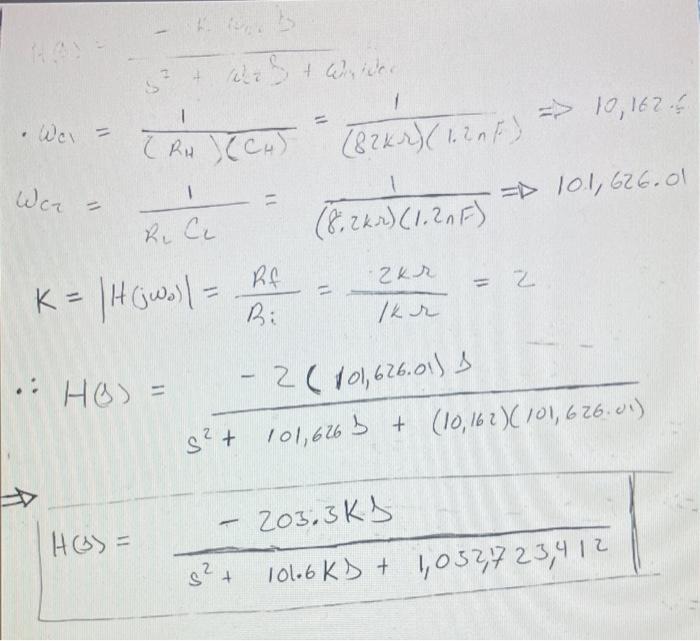 H(s) = - K ωc2 s / s² + ωc2 s + ωc1 ωc2
• ωc1 = 1 / (RH)(CH) = 1 / (82kΩ)(1.2nF) => 10,162.6
ωc2 = 1 / RL CL = 1 / (8.2kΩ)(1.2nF) => 101,626.01
K = |H(jω₀)| = Rf / Ri = 2kΩ / 1kΩ = 2
∴ H(s) = - 2 (101,626.01) s / s² + 101,626 s + (10,162)(101,626.01)
=> H(s) = - 203.3K s / s² + 101.6K s + 1,032,723,412